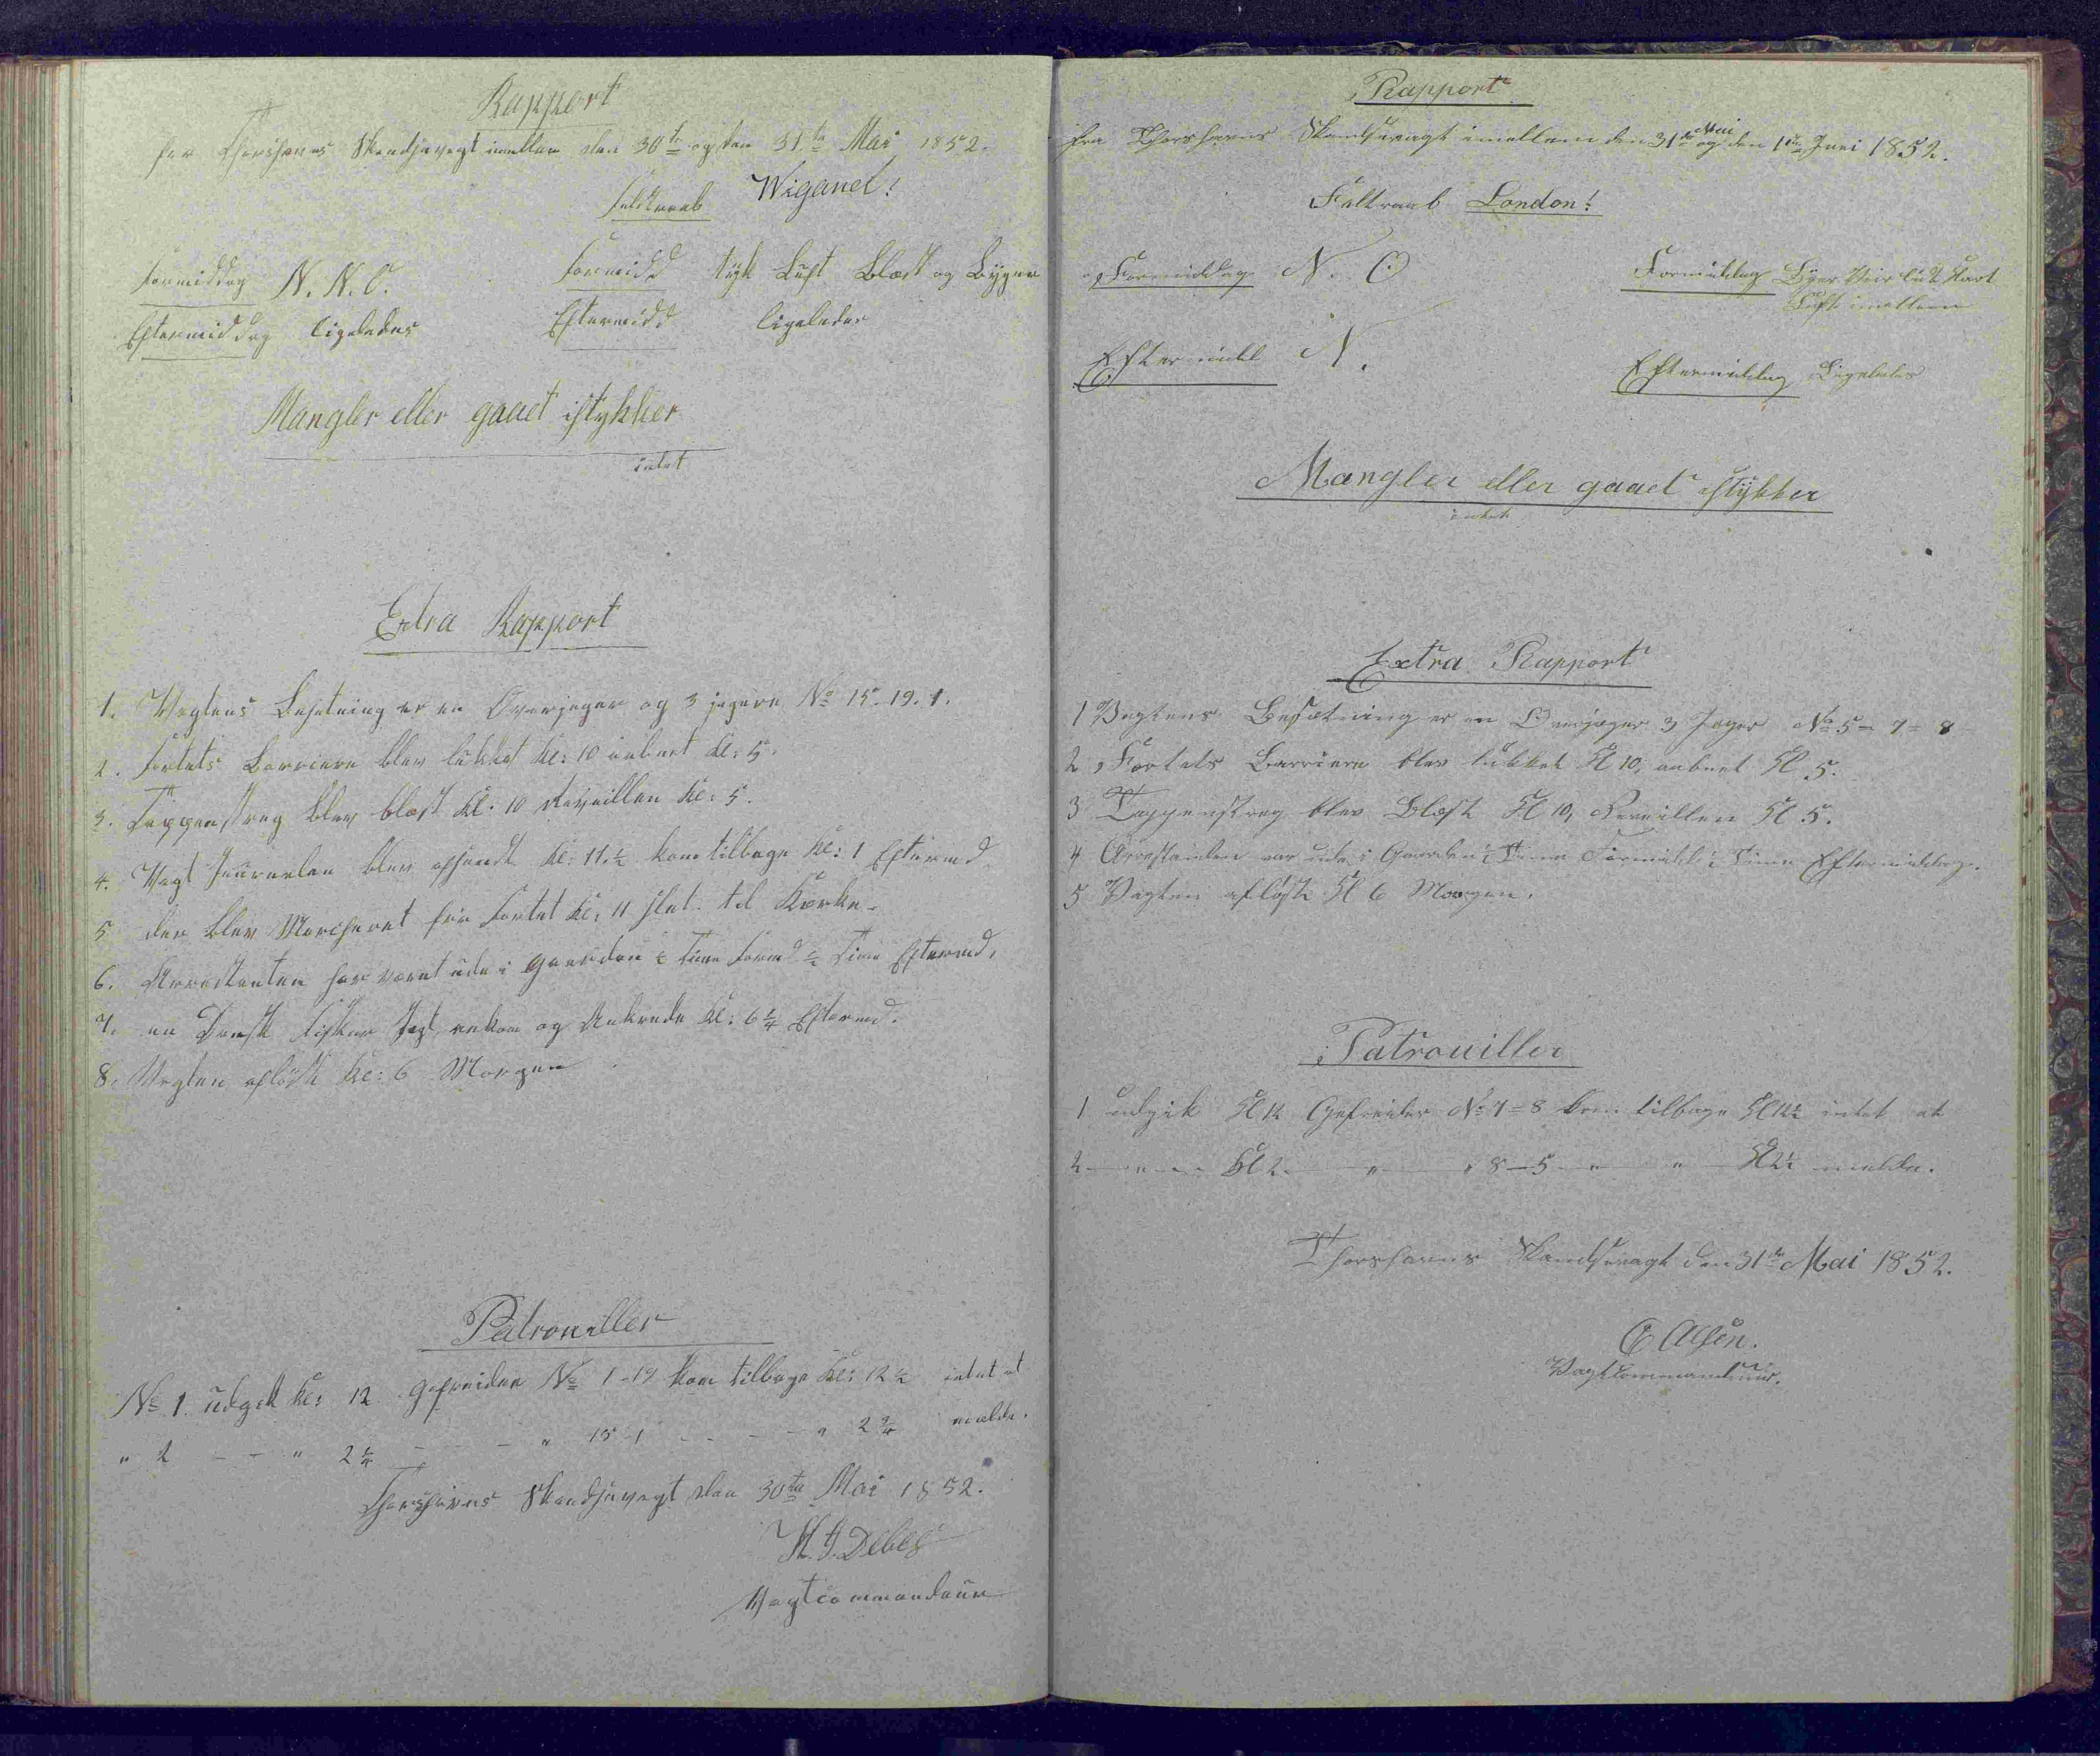 Rapport
fra Thorshavns Skandsevagt imellem den 30te og den 31te Mai 1852.
Feldtraab Wigand!
Formiddag N. N. O. Formidd tyk Luft Blæst og Byger
Eftermiddag ligeledes Eftermidd ligeledes
Mangler eller gaaet istykker
intet
Extra Rapport
1. Vagtens Besetning er en Overjeger og 3 jegere No 15. 19. 1.
2. Fortets Barriere blev lukket Kl: 10 aabnet Kl: 5.
3. Tappenstreg blev blæst Kl: 10 Reveillen Kl: 5.
4. Vagt Journalen blev afsendt Kl: 11.½ kom tilbage Kl: 1 Eftermd
5 der blev Marcheret fra Fortet Kl: 11 slet. til Kirke.
6. Arrestanten har været ude i Gaarden ½ Time Formd ½ Time Eftermd,
7. en Dansk Fisker Jagt ankom og Ankrede Kl: 6¼ Eftermd.
8. Vagten afløste Kl: 6 Morgen
Patrouiller
No 1. udgik Kl: 12 Gefreider No 1-19 kom tilbage Kl: 12½ intet at
" 2 - - " 2¼ - - - " 15-1 - - - " 2¾ melde.
Thorshavns Skandsevagt den 30te Mai 1852.
H. J. Debes
Vagtcommandeur
Rapport
Fra Thorshavns Skandsevagt imellem den 31te Mai og den 1ste Juni 1852.
Feltraab London!
Formiddag N. O Formiddag Byge Veir lidt klart
Luft imellem
Eftermidd N. Eftermiddag Ligeledes
Mangler eller gaaet istykker
intet
Extra Rapport
1 Vagtens Besætning er en Overjæger 3 Jæger No 5 = 7 = 8
2 Fortets Barriere blev lukket Kl 10, aabnet Kl 5.
3 Tappenstreg blev Blæst Kl 10, Reveillen Kl 5.
4 Arrestanten var ude i Gaarden ½ Time Formidd ½ Time Eftermiddag.
5 Vagten afløste Kl 6 Morgen.
Patrouiller
1 udgik Kl 12 Gefreider No 7 = 8 kom tilbage Kl 12½ intet at
2 - " - Kl 2 - " - " 8 - 5 - " " Kl 2½ melde.
Thorshavns Skandsevagt den 31te Mai 1852.
C Olsen.
Vagtcommandeur.